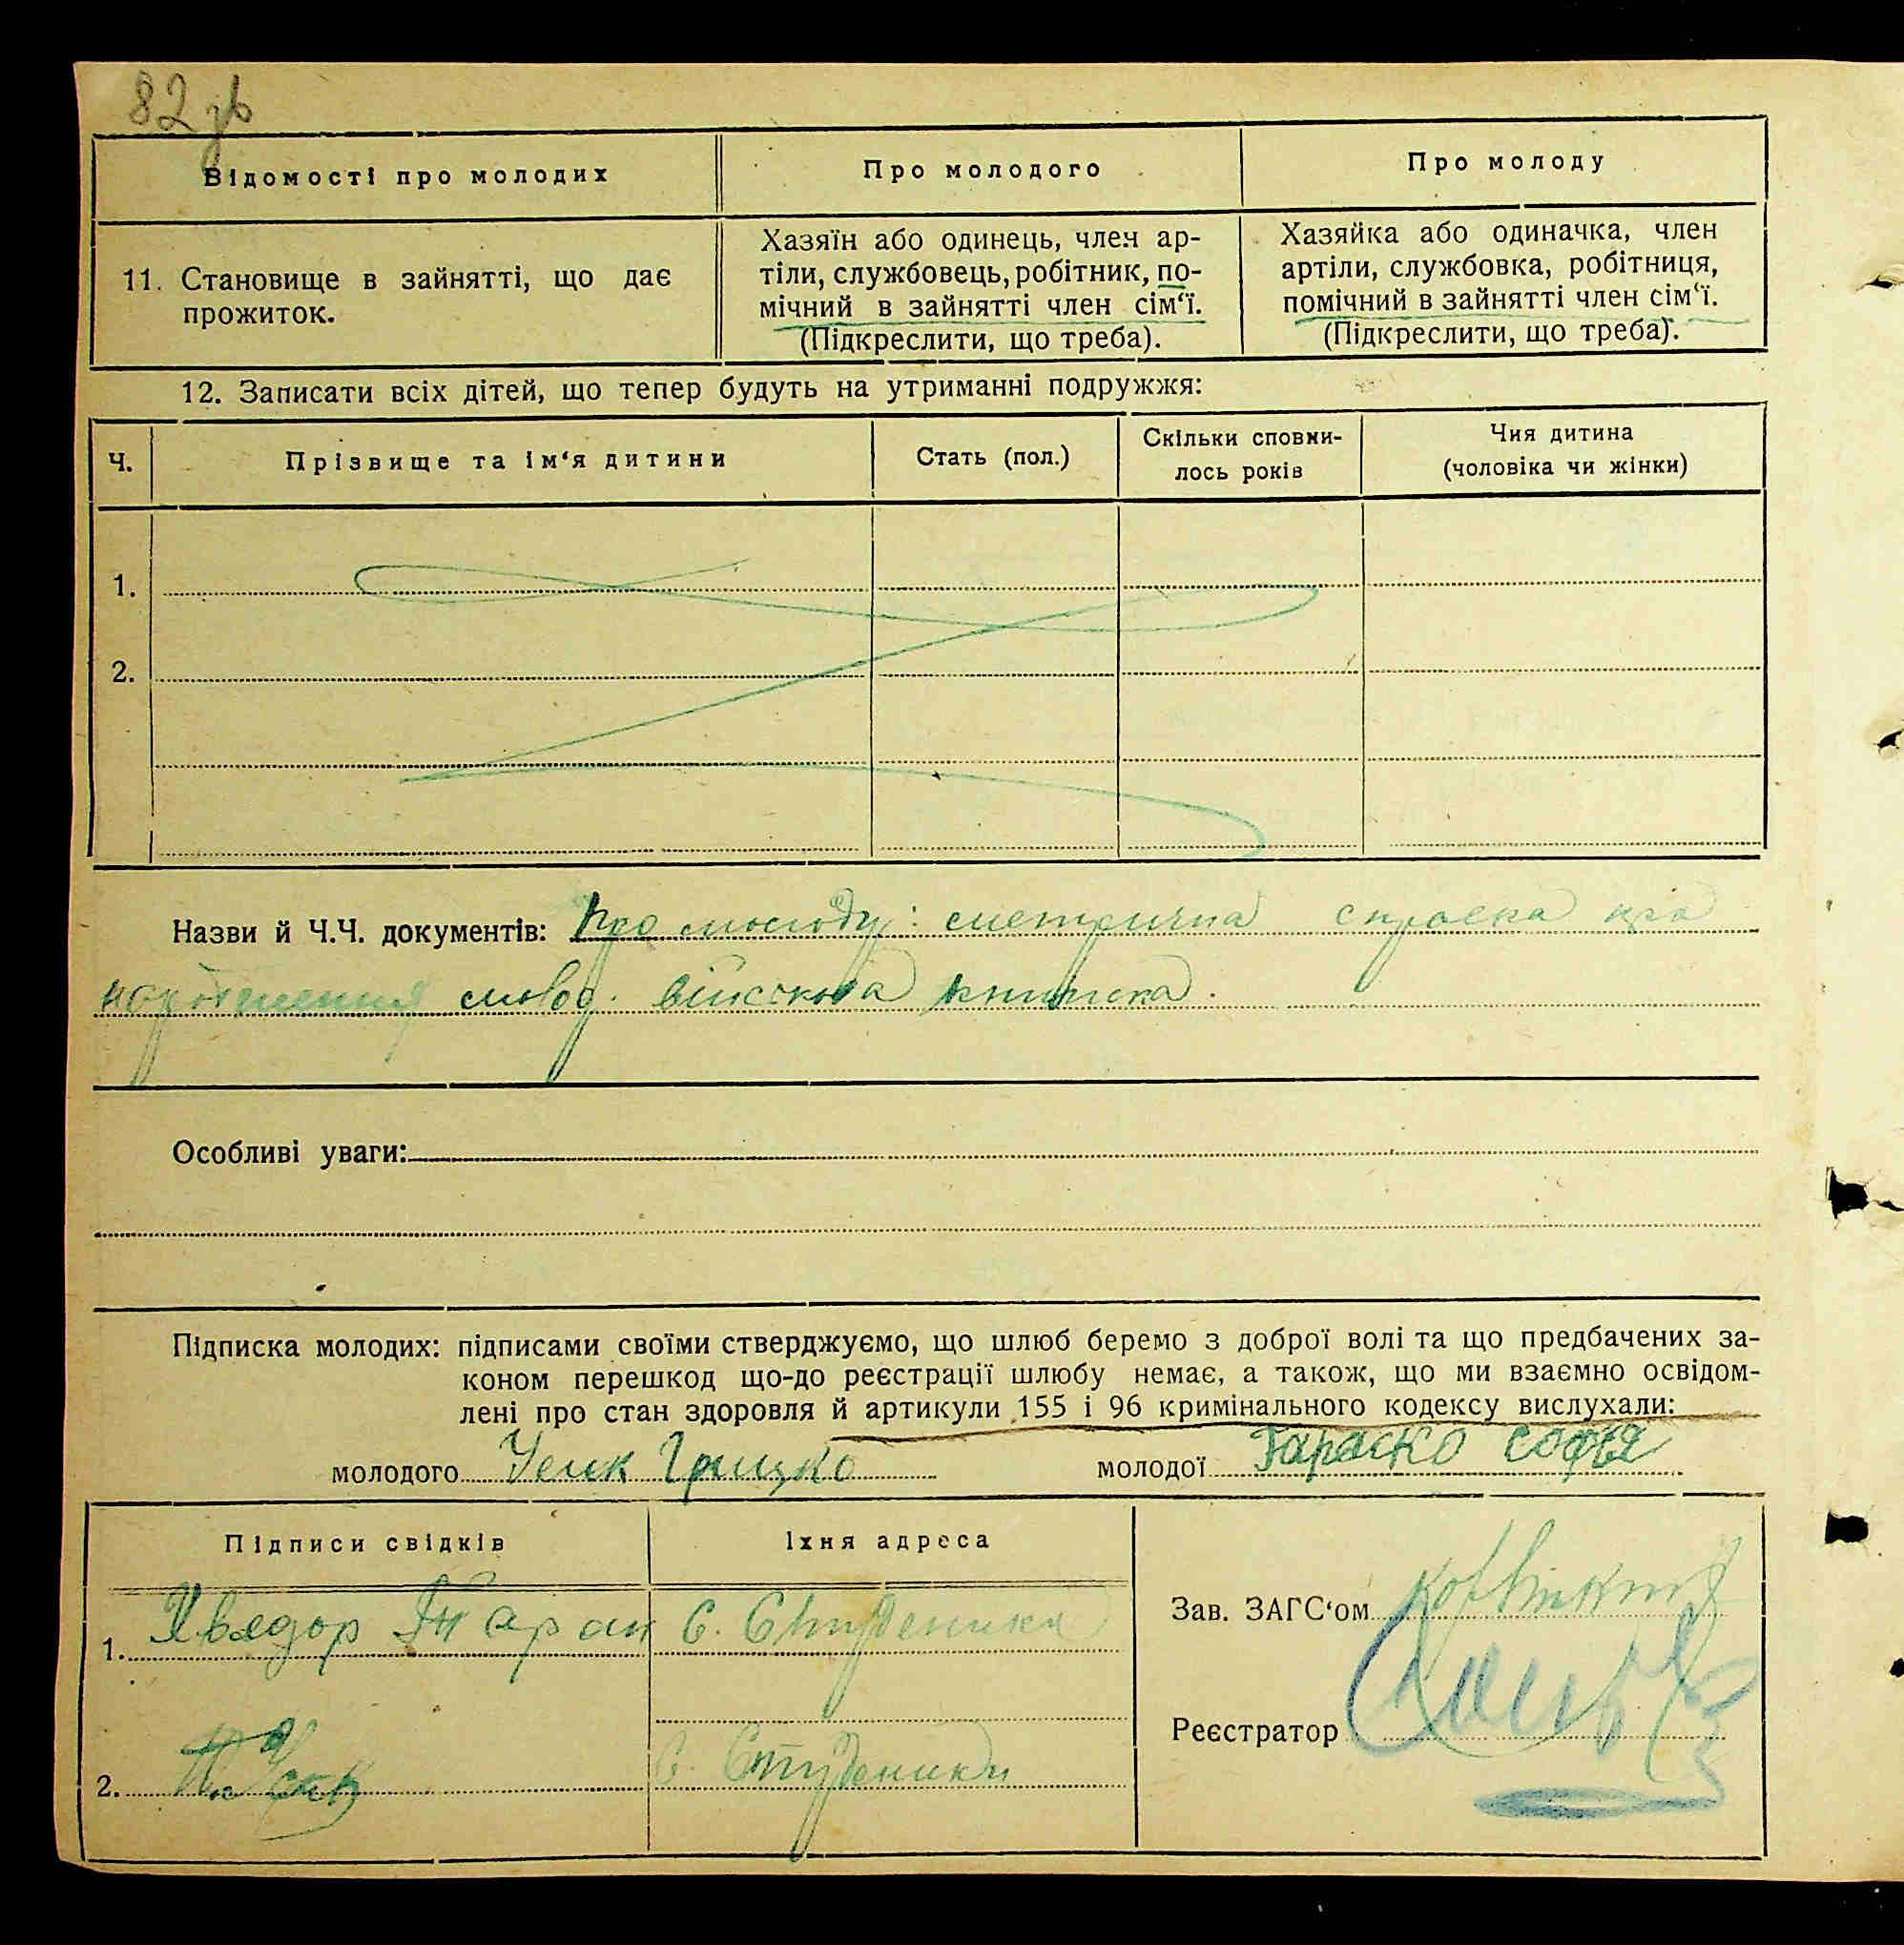 82 зв
Відомості про молодих
Про молодого
Про молоду
11. Становище в зайнятті, що дає
прожиток.
Хазяїн або одинець, член ар-
тіли, службовець, робітник, по-
мічний в зайнятті член сім‘ї.
(Підкреслити, що треба).
Хазяйка або одиначка, член
артіли, службовка, робітниця,
помічний в зайнятті член сім‘ї.
(Підкреслити, що треба).
12. Записати всіх дітей, що тепер будуть на утриманні подружжя:
Ч.
Прізвище та ім‘я дитини
Стать (пол.)
Скільки сповни-
лось років
Чия дитина
(чоловіка чи жінки)
1.
2.
Назви й Ч.Ч. документів: Про молоду: метрична справка про
молод. військова книжка.
Особливі уваги:
Підписка молодих: підписами своїми стверджуємо, що шлюб беремо з доброї волі та що предбачених за-
коном перешкод що-до реєстрації шлюбу немає, а також, що ми взаємно освідом-
лені про стан здоровля й артикули 155 і 96 кримінального кодексу вислухали:
молодого Усик Грицко молодої Тараско Софія
Підписи свідків
Їхня адреса
1. Хведор Таран С. Студеники
2. С. Студеники
Зав. ЗАГС‘ом
Реєстратор